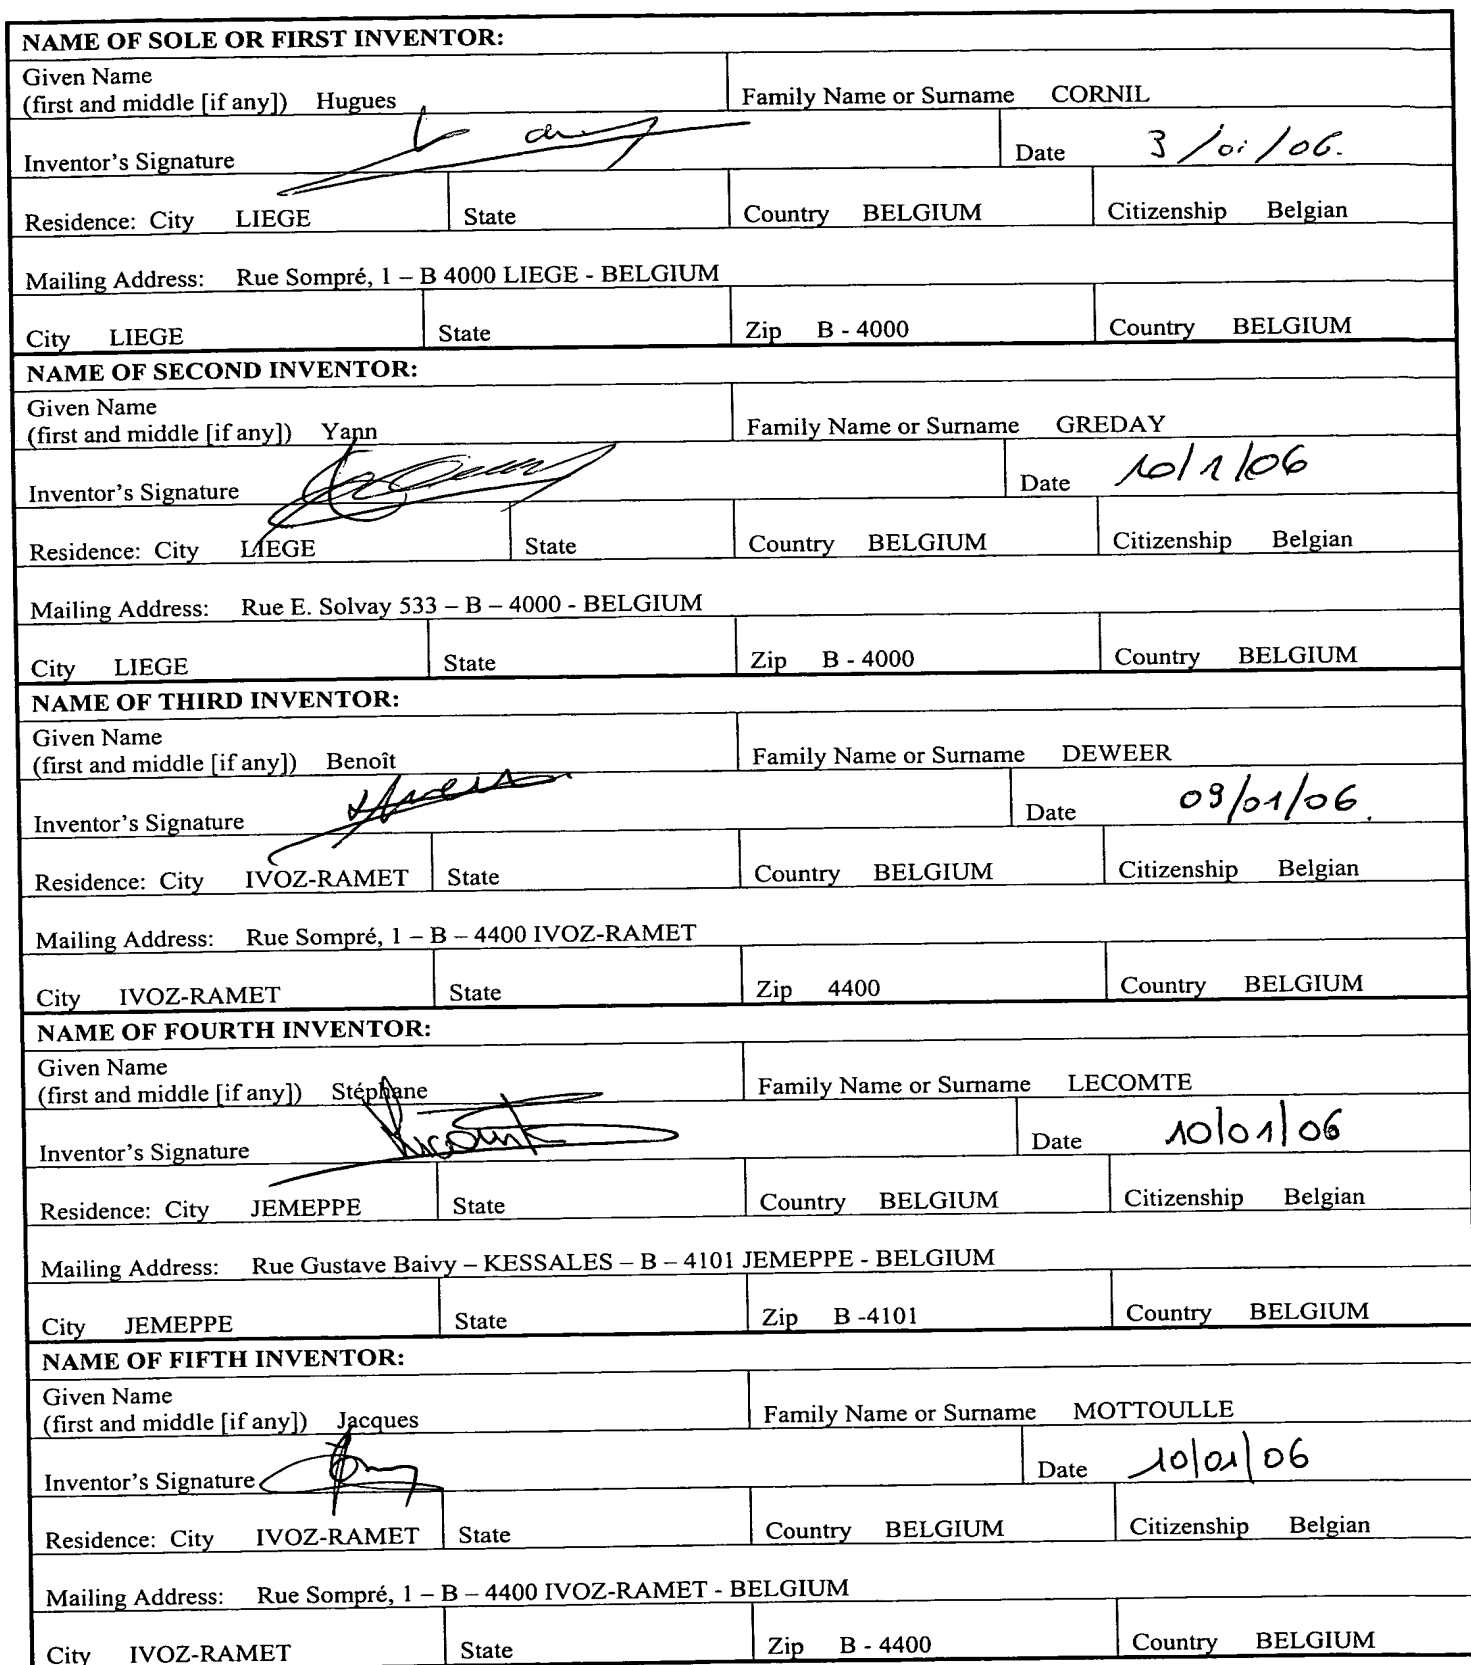 NAME OF SOLE OR FIRST INVENTOR:
Given Name
(first and middle [if any]) Hugues Family Name or Surname CORNIL
Inventor's Signature Date 3/01/06.
Residence: City LIEGE State Country BELGIUM Citizenship Belgian
Mailing Address: Rue Sompré, 1 – B 4000 LIEGE - BELGIUM
City LIEGE State Zip B - 4000 Country BELGIUM
NAME OF SECOND INVENTOR:
Given Name
(first and middle [if any]) Yann Family Name or Surname GREDAY
Inventor's Signature Date 10/1/06
Residence: City LIEGE State Country BELGIUM Citizenship Belgian
Mailing Address: Rue E. Solvay 533 – B – 4000 - BELGIUM
City LIEGE State Zip B - 4000 Country BELGIUM
NAME OF THIRD INVENTOR:
Given Name
(first and middle [if any]) Benoît Family Name or Surname DEWEER
Inventor's Signature Date 09/01/06.
Residence: City IVOZ-RAMET State Country BELGIUM Citizenship Belgian
Mailing Address: Rue Sompré, 1 – B – 4400 IVOZ-RAMET
City IVOZ-RAMET State Zip 4400 Country BELGIUM
NAME OF FOURTH INVENTOR:
Given Name
(first and middle [if any]) Stéphane Family Name or Surname LECOMTE
Inventor's Signature Date 10/01/06
Residence: City JEMEPPE State Country BELGIUM Citizenship Belgian
Mailing Address: Rue Gustave Baivy – KESSALES – B – 4101 JEMEPPE - BELGIUM
City JEMEPPE State Zip B -4101 Country BELGIUM
NAME OF FIFTH INVENTOR:
Given Name
(first and middle [if any]) Jacques Family Name or Surname MOTTOULLE
Inventor's Signature Date 10/01/06
Residence: City IVOZ-RAMET State Country BELGIUM Citizenship Belgian
Mailing Address: Rue Sompré, 1 – B – 4400 IVOZ-RAMET - BELGIUM
City IVOZ-RAMET State Zip B - 4400 Country BELGIUM